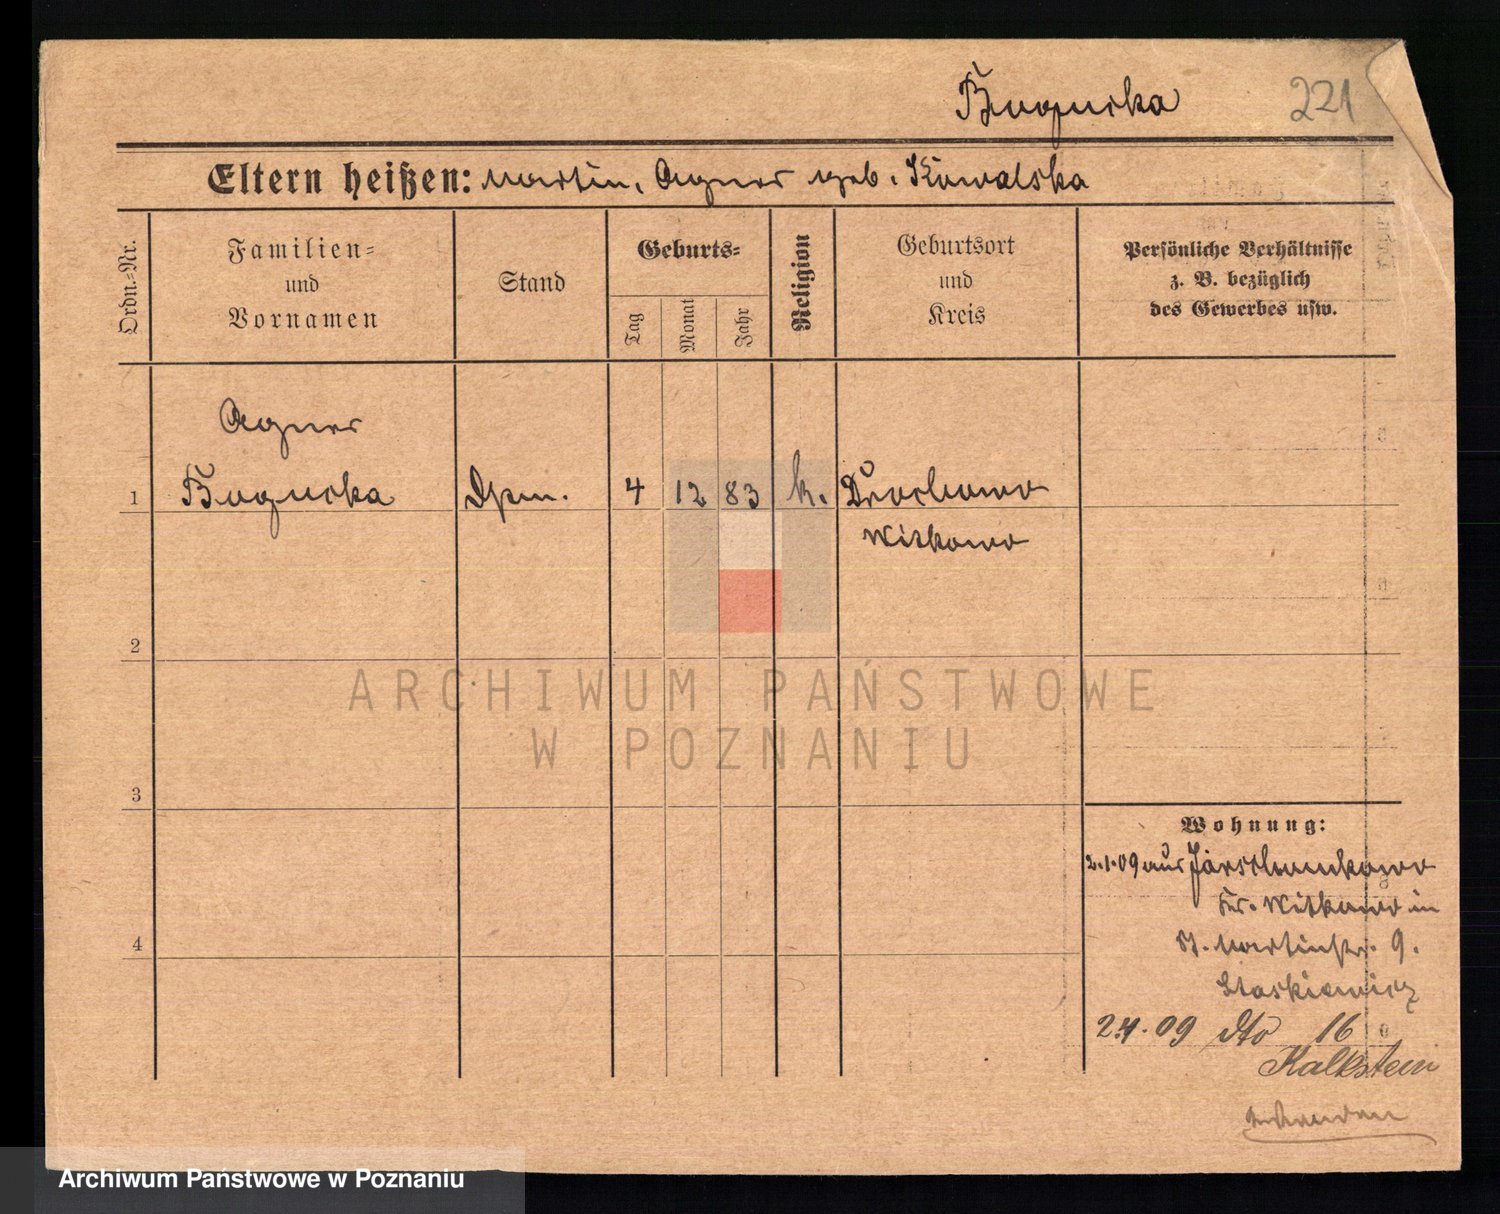 Bugucka 221
Eltern heißen: Martin, Agnes geb. Kowalska
Ordn.-Nr.
Familien-
und
Vornamen
Stand
Geburts-
Tag
Monat
Jahr
Religion
Geburtsort
und
Kreis
Persönliche Verhältnisse
z. B. bezüglich
des Gewerbes usw.
Agnes
1 4 12 83 k.
Witkowo
2
ARCHIWUM PAŃSTWOWE
W POZNANIU
3
Wohnung:
2.1.09 aus
Kr. Witkowo in
St. Martinstr. 9.
Staskiewicz
2.4.09 dto 16
4
Kalkstein
Archiwum Państwowe w Poznaniu